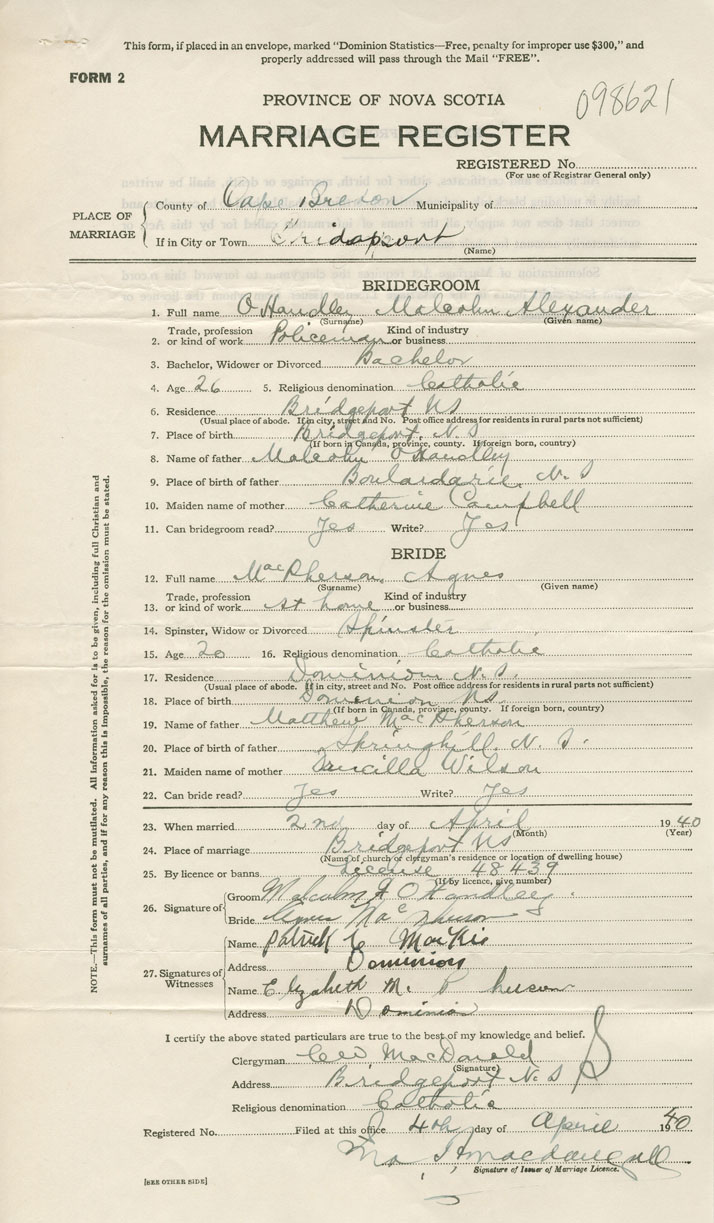 This form, if placed in an envelope, marked "Dominion Statistics—Free, penalty for improper use $300," and
properly addressed will pass through the Mail "FREE".
FORM 2
098621
PROVINCE OF NOVA SCOTIA
MARRIAGE REGISTER
REGISTERED No.
(For use of Registrar General only)
PLACE OF MARRIAGE
County of Cape Breton Municipality of
If in City or Town Bridgeport
(Name)
BRIDEGROOM
1. Full name O'Handley Malcolm Alexander
(Surname) (Given name)
2. Trade, profession or kind of work Policeman Kind of industry or business
3. Bachelor, Widower or Divorced Bachelor
4. Age 26 5. Religious denomination Catholic
6. Residence Bridgeport NS
(Usual place of abode. If in city, street and No. Post office address for residents in rural parts not sufficient)
7. Place of birth Bridgeport, N.S
(If born in Canada, province, county. If foreign born, country)
8. Name of father Malcolm O'Handley
9. Place of birth of father Boulardarie, N.S
10. Maiden name of mother Catherine Campbell
11. Can bridegroom read? Yes Write? Yes
BRIDE
12. Full name MacPherson, Agnes
(Surname) (Given name)
13. Trade, profession or kind of work At home Kind of industry or business
14. Spinster, Widow or Divorced Spinster
15. Age 20 16. Religious denomination Catholic
17. Residence Dominion N.S.
(Usual place of abode. If in city, street and No. Post office address for residents in rural parts not sufficient)
18. Place of birth Dominion NS.
(If born in Canada, province, county. If foreign born, country)
19. Name of father Matthew MacPherson
20. Place of birth of father Springhill, N.S.
21. Maiden name of mother Wilson
22. Can bride read? Yes Write? Yes
23. When married 2nd day of April 1940
(Month) (Year)
24. Place of marriage Bridgeport NS
(Name of church or clergyman's residence or location of dwelling house)
25. By licence or banns License 48439
(If by licence, give number)
26. Signature of
Groom Malcolm A O'Handley
Bride Agnes MacPherson
27. Signatures of Witnesses
Name Patrick
Address Dominion
Name Elizabeth M.
Address Dominion
I certify the above stated particulars are true to the best of my knowledge and belief.
Clergyman MacDonald
(Signature)
Address Bridgeport N.S
Religious denomination Catholic
Registered No. Filed at this office 4th day of April 1940
Signature of Issuer of Marriage Licence.
[SEE OTHER SIDE]
NOTE.—This form must not be mutilated. All information asked for is to be given, including full Christian and
surnames of all parties, and if for any reason this is impossible, the reason for the omission must be stated.